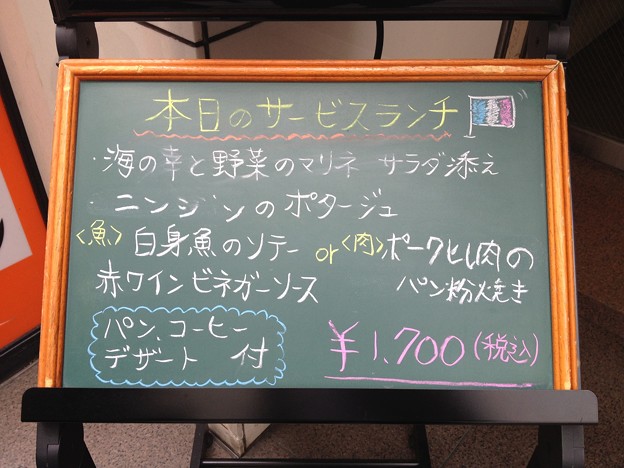 本日のサービスランチ
・海の幸と野菜のマリネ サラダ添え
・ニンジンのポタージュ
<魚>白身魚のソテー or <肉>ポークヒレ肉の
赤ワインビネガーソース パン粉焼き
パン、コーヒー
デザート 付
¥1,700(税込)